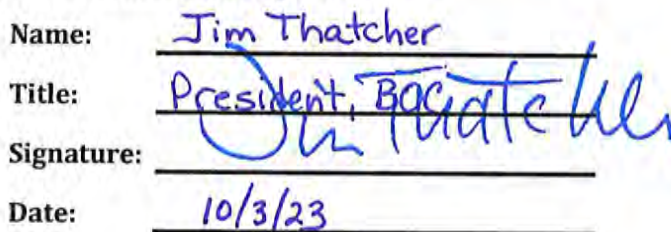 Name: Jim Thatcher
Title: President, BOC
Signature: Jim Thatcher
Date: 10/3/23